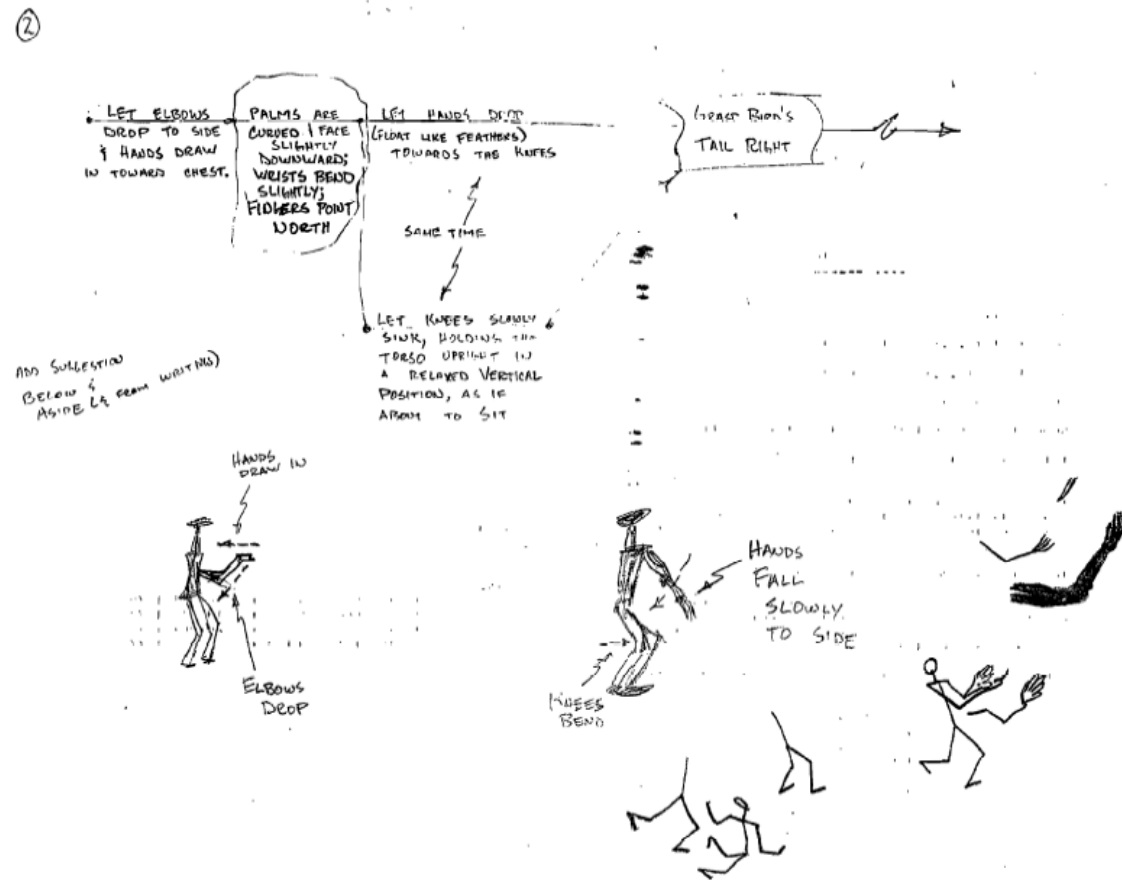 ②
LET ELBOWS
DROP TO SIDE
& HANDS DRAW
IN TOWARD CHEST.
PALMS ARE
CURVED | FACE
SLIGHTLY
DOWNWARD;
WRISTS BEND
SLIGHTLY;
FINGERS POINT
NORTH
LET HANDS
(FLOAT LIKE FEATHERS)
TOWARDS THE KNEES
SAME TIME
LET KNEES SLOWLY
SINK, HOLDING THE
TORSO UPRIGHT IN
A RELAXED VERTICAL
POSITION, AS IF
ABOUT TO SIT
GRASP BIRD'S
TAIL RIGHT
ADD SUGGESTION
BELOW &
ASIDE FROM WRITING)
HANDS
DRAW IN
ELBOWS
DROP
HANDS
FALL
SLOWLY
TO SIDE
KNEES
BEND